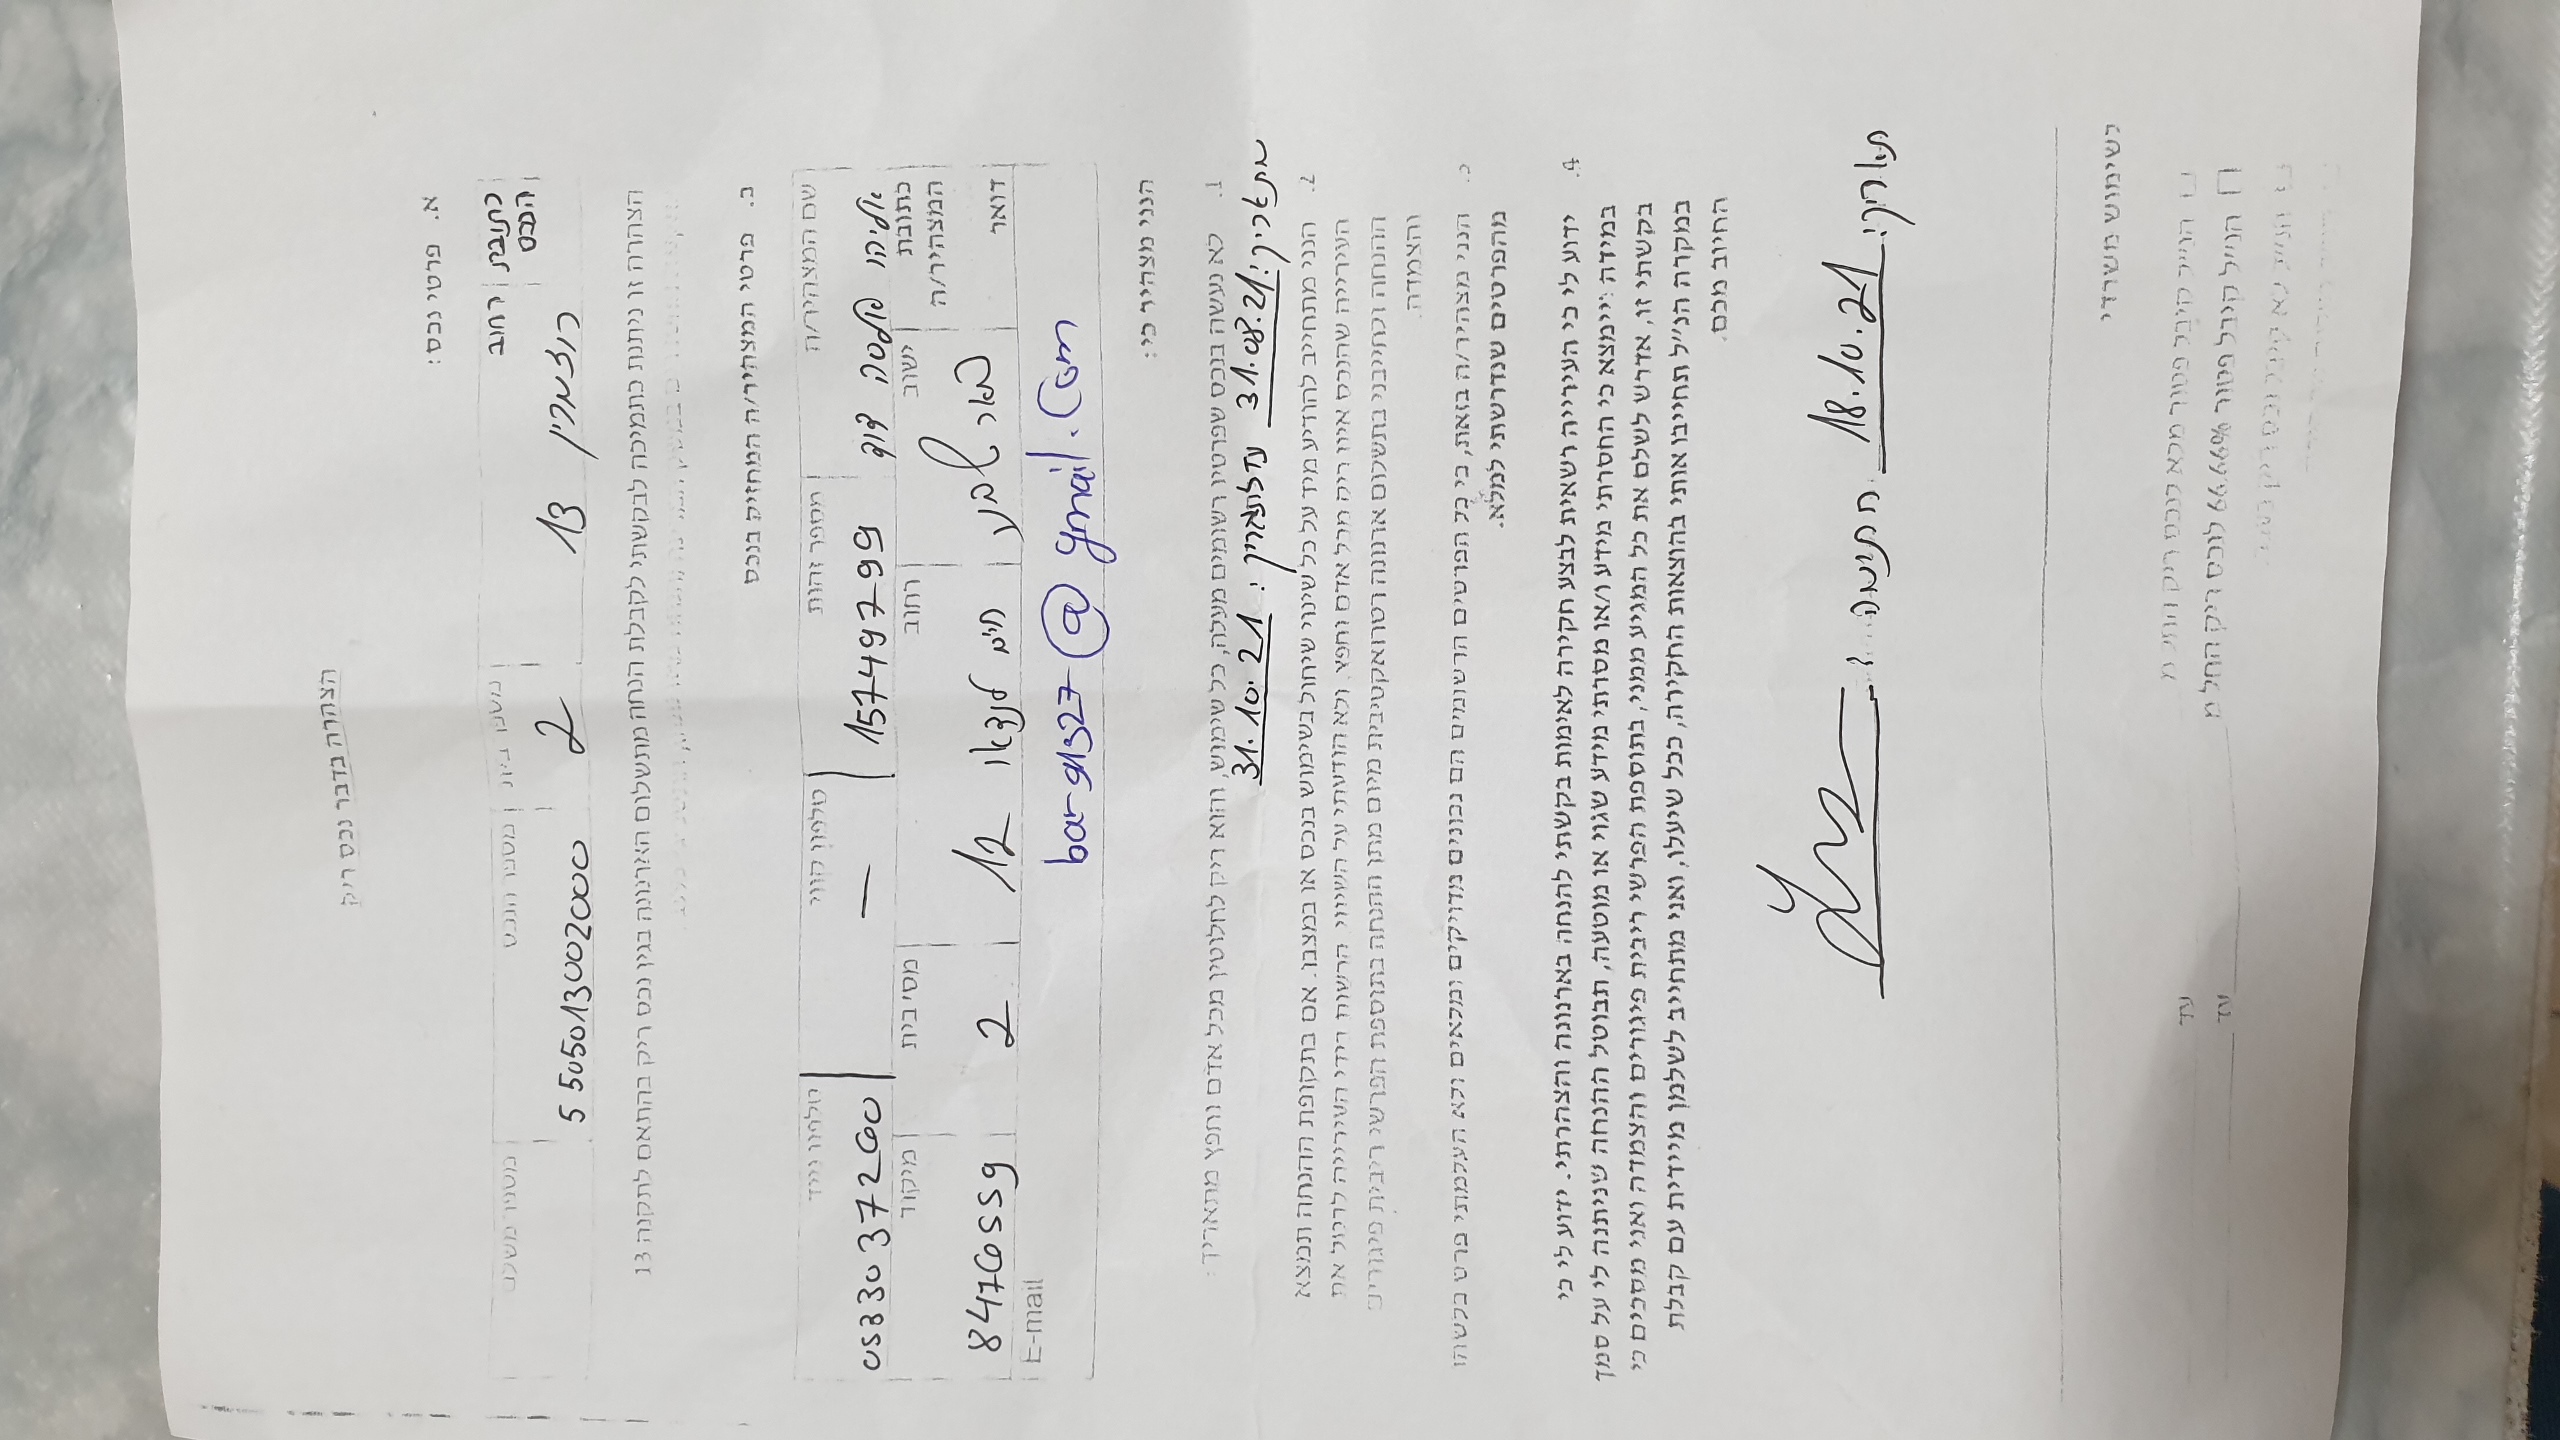 הצהרה בדבר נכס ריק
א. פרטי נכס:
כתובת הנכס רחוב מספר בית מספר הנכס מספר משלם
רוזמרין 13 2 5505013002000
הצהרה זו ניתנת כתמיכה לבקשתי לקבלת הנחה מתשלום הארנונה בגין נכס ריק בהתאם לתקנה 13
ב. פרטי המצהיר/ה המחזיק בנכס
שם המצהיר/ה מספר זהות טלפון קווי טלפון נייד
אליהו דוד 157499799 — 0533037260
כתובת המצהיר/ה ישוב רחוב מס' בית מיקוד
דואר באר שבע חיים לנדאו 12 2 8476559
E-mail
bar91327@gmail.com
הנני מצהיר כי:
1. לא נעשה בנכס שפרטיו רשומים מעלה, כל שימוש, והוא ריק לחלוטין מכל אדם וחפץ מתאריך:
מתאריך: 31.08.21 עד לתאריך: 31.10.21
2. הנני מתחייב להודיע מיד על כל שינוי שיחול בשימוש בנכס או במצבו. אם בתקופת ההנחה תמצא
העירייה שהנכס אינו ריק מכל אדם וחפץ, ולא הודעתי על השינוי, הרשות בידי העירייה לבטל את
ההנחה ולחייבני בתשלום ארנונה רטרואקטיבית מיום מתן ההנחה בתוספת הפרשי ריבית פיגורים
והצמדה.
הנני מצהיר/ה בזאת, כי כל הפרטים הרשומים הם נכונים מדויקים ומלאים ולא העלמתי פרט כלשהו
מהפרטים שנדרשתי למלא.
4. ידוע לי כי העירייה רשאית לבצע חקירה לאימות בקשתי להנחה בארנונה והצהרתי. ידוע לי כי
במידה יימצא כי החסרתי מידע ו/או מסרתי מידע שגוי או מוטעה, תבוטל ההנחה שניתנה לי על סמך
בקשתי זו, אדרש לשלם את כל המגיע ממני, בתוספת הפרשי ריבית פיגורים והצמדה ואני מסכים כי
במקרה הנ"ל תחייבו אותי בהוצאות החקירה, ככל שיעלו, ואני מתחייב לשלמן מיידית עם קבלת
החיוב מכם.
תאריך: 18.10.21 חתימה:
לשימוש משרדי
הנ"ל קיבל פטור מלא לנכס ריק החל מ עד
הנ"ל קיבל פטור 66.66% לנכס ריק החל מ עד
הנ"ל לא קיבל נכס ריק בעבר.